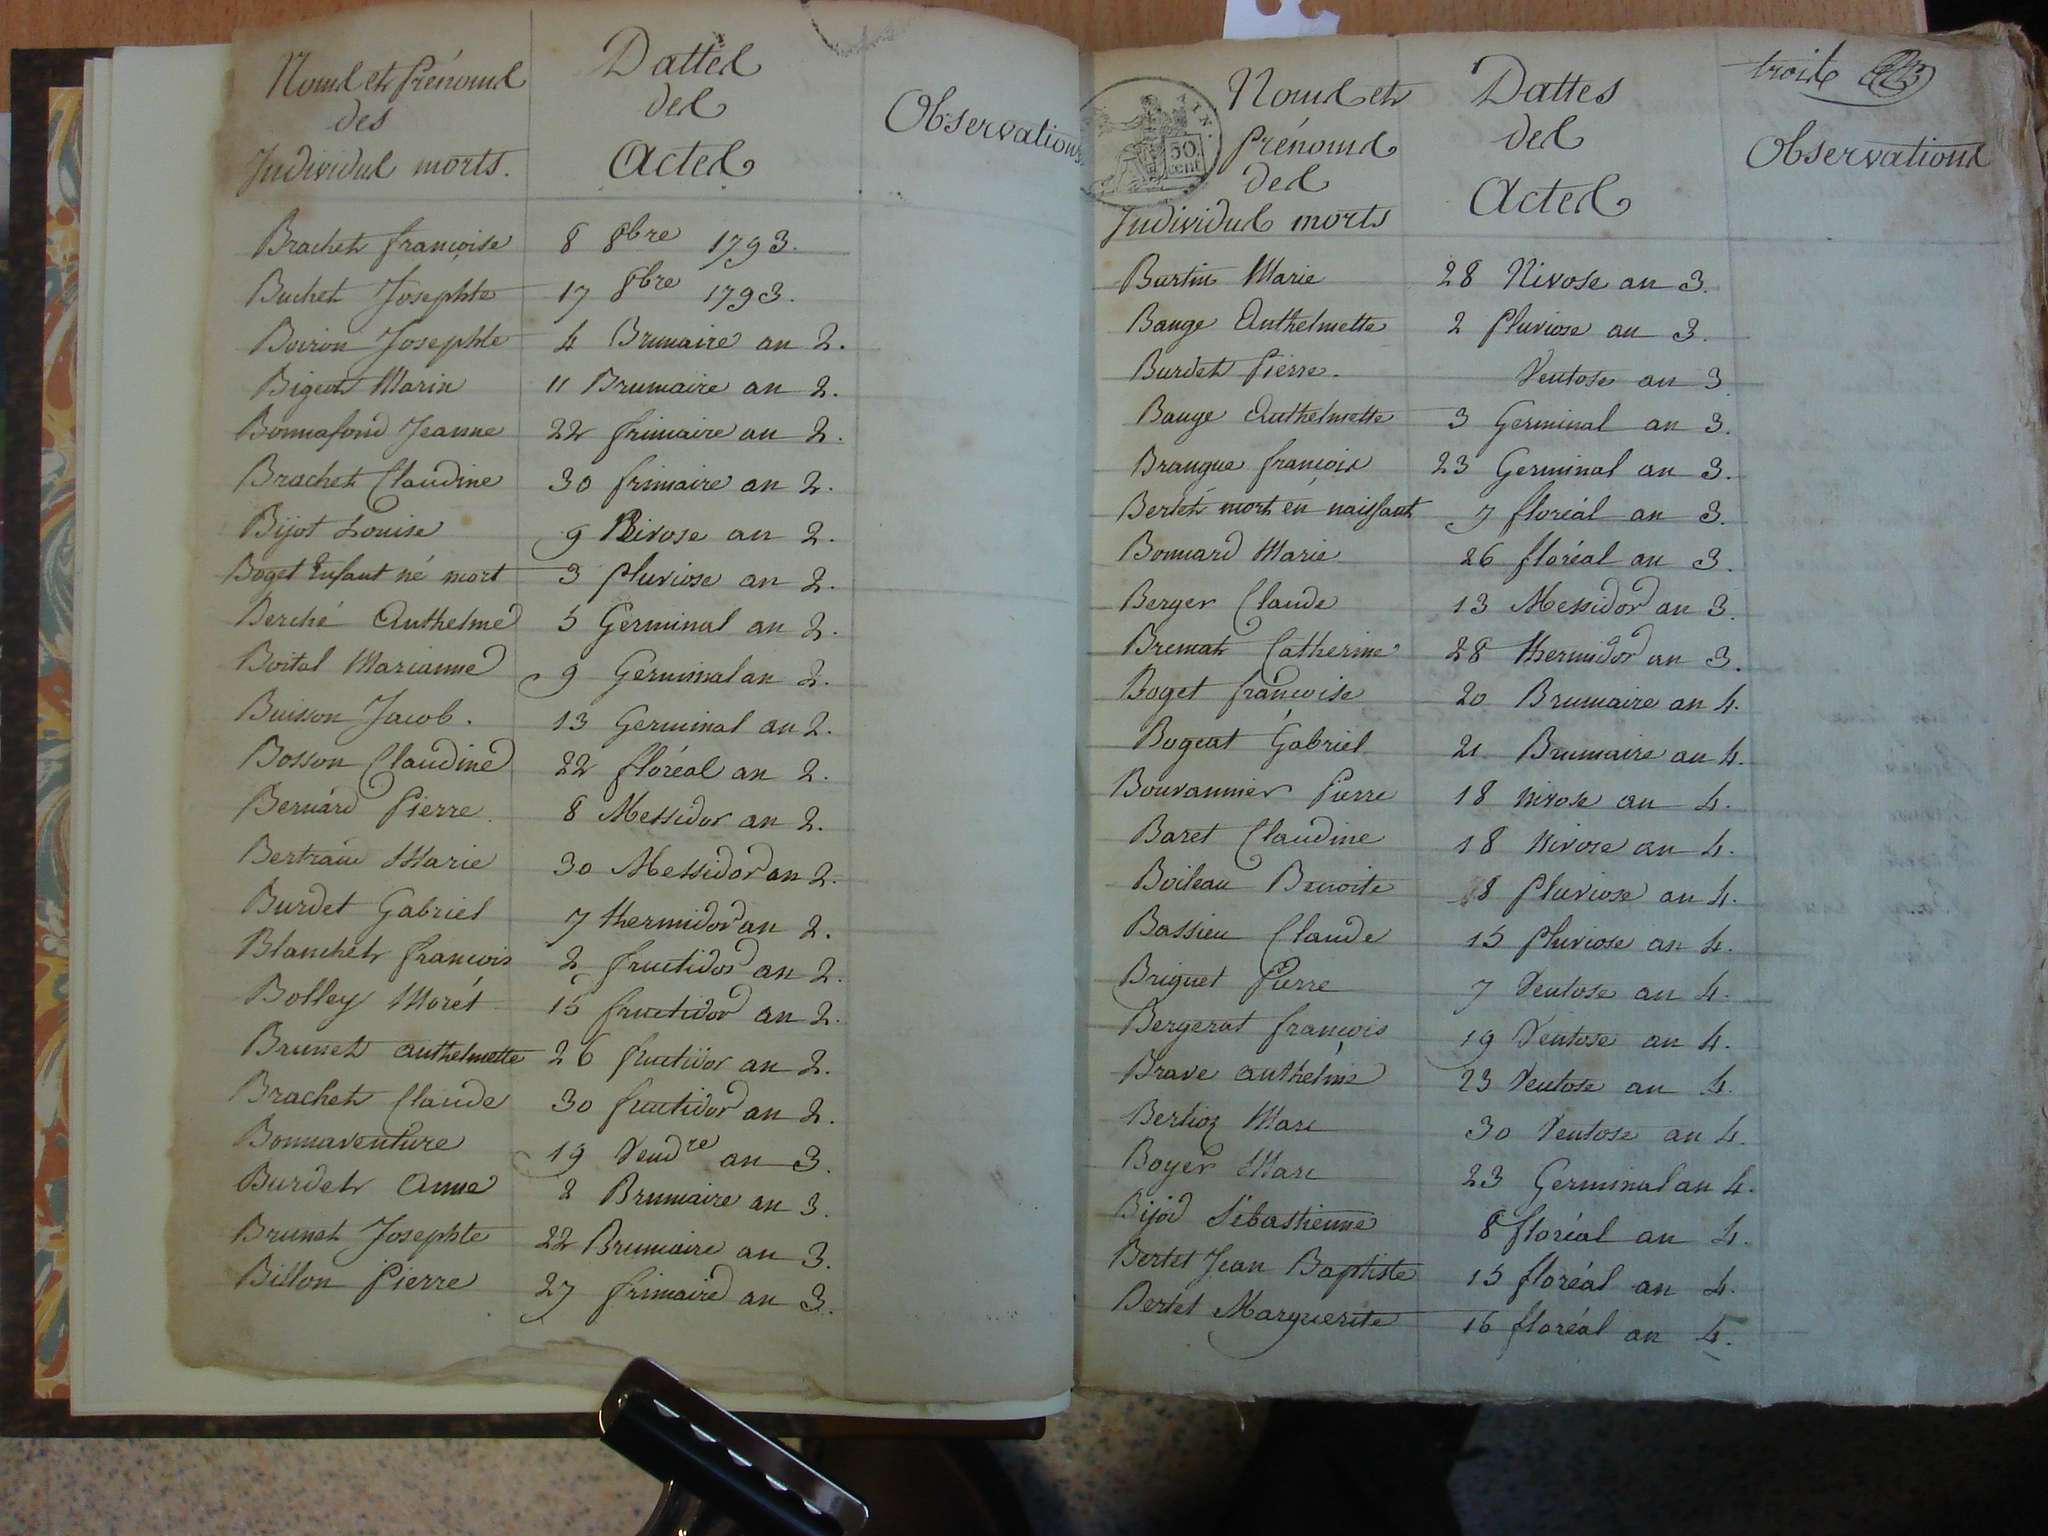 Noms et Prénoms
des
Individus morts.
Dattes
des
Actes
Observations
Brachet françoise 8 8bre 1793.
Buchet Josephte 17 8bre 1793.
Boiron Josephte 4 Brumaire an 2.
Bigeot Marin 11 Brumaire an 2.
Bonnafond Jeanne 22 frimaire an 2.
Brachet Claudine 30 frimaire an 2.
Bijot Louise 9 Nivose an 2.
Boget Enfant né mort 3 pluviose an 2.
Berché Anthelme 5 Germinal an 2.
Boital Marianne 9 Germinal an 2.
Buisson Jacob. 13 Germinal an 2.
Bosson Claudine 22 floréal an 2.
Bernard Pierre 8 Messidor an 2.
Bertrain Marie 30 Messidor an 2.
Burdet Gabriel 7 thermidor an 2.
Blanchet françois 2 fructidor an 2.
Bolley Morét 15 fructidor an 2.
Brunet anthelmette 26 fructidor an 2.
Brachet Claude 30 fructidor an 2.
Bonnaventure 19 Vendre an 3.
Burdet Anne 2 Brumaire an 3.
Brunet Josephte 22 Brumaire an 3.
Billon Pierre 27 frimaire an 3.
trois
Noms et
Prénoms
des
Individus morts
Dattes
des
Actes
Observations
50
cent
Burtin Marie 28 Nivose an 3.
Bauge Anthelmette 2 pluviose an 3.
Burdet Pierre. Ventose an 3
Bauge Anthelmette 3 Germinal an 3.
Brangue françois 23 Germinal an 3.
Bertét mort en naissant 7 floréal an 3.
Bonnard Marie 26 floréal an 3.
Berger Claude 13 Messidor an 3.
Bremat Catherine 28 thermidor an 3.
Boget françoise 20 Brumaire an 4.
Bogeat Gabriel 21 Brumaire an 4.
Bouvannier Pierre 18 nivose an 4.
Baret Claudine 18 Nivose an 4.
Boileau Benoite 8 pluviose an 4.
Bassieu Claude 15 pluviose an 4.
Briguet Pierre 7 Ventose an 4.
Bergerat françois 19 Ventose an 4.
Brave anthelme 23 Ventose an 4.
Berlioz Marc 30 Ventose an 4.
Boyer Marc 23 Germinal an 4.
Bijod Sébastienne 8 floréal an 4.
Bertet Jean Baptiste 15 floréal an 4.
Bertet Marguerite 16 floréal an 4.